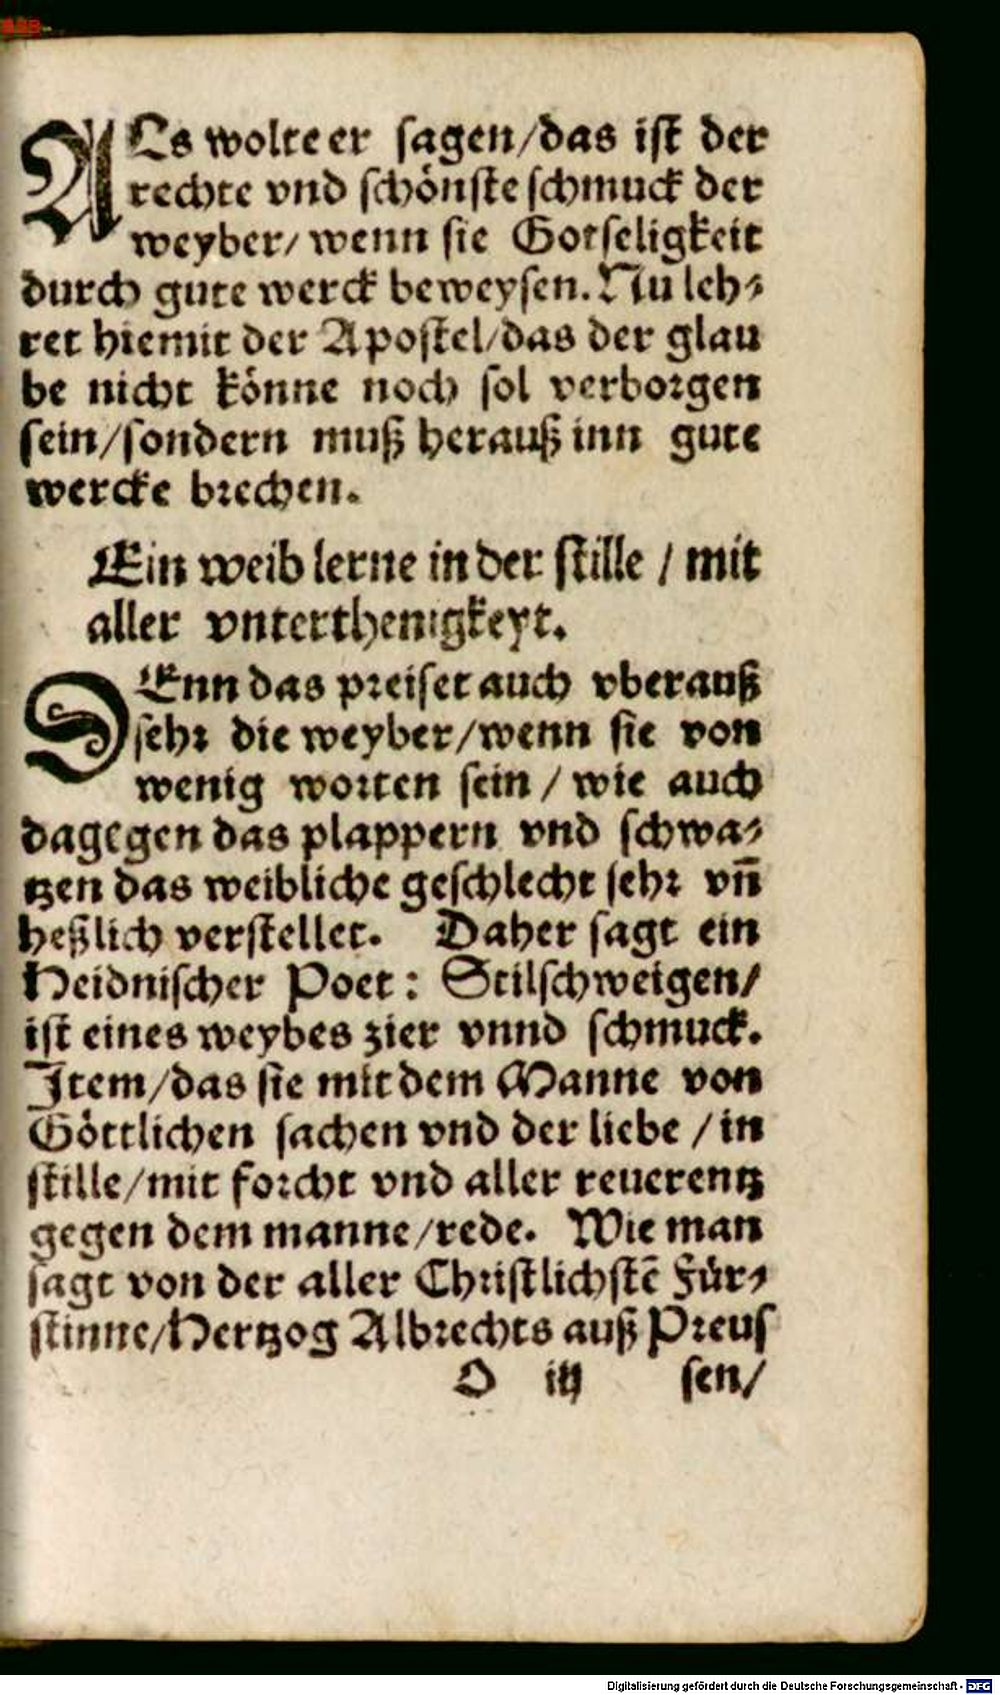 ALs wolte er sagen/das ist der
rechte vnd schönste schmuck der
weyber/ wenn sie Gotseligkeit
durch gute werck beweysen. Nu leh⸗
ret hiemit der Apostel/das der glau
be nicht könne noch sol verborgen
sein/sondern muß herauß inn gute
wercke brechen.
Ein weib lerne in der stille / mit
aller vnterthenigkeyt.
DEnn das preiset auch vberauß
sehr die weyber/wenn sie von
wenig worten sein / wie auch
dagegen das plappern vnd schwa⸗
tzen das weibliche geschlecht sehr vn̄
heßlich verstellet. Daher sagt ein
Heidnischer Poet: Stilschweigen/
ist eines weybes zier vnnd schmuck.
Item/das sie mit dem Manne von
Göttlichen sachen vnd der liebe / in
stille/mit forcht vnd aller reuerentz
gegen dem manne/rede. Wie man
sagt von der aller Christlichstē Für⸗
stinne/Hertzog Albrechts auß Preus
O iij sen/
Digitalisierung gefördert durch die Deutsche Forschungsgemeinschaft - DFG